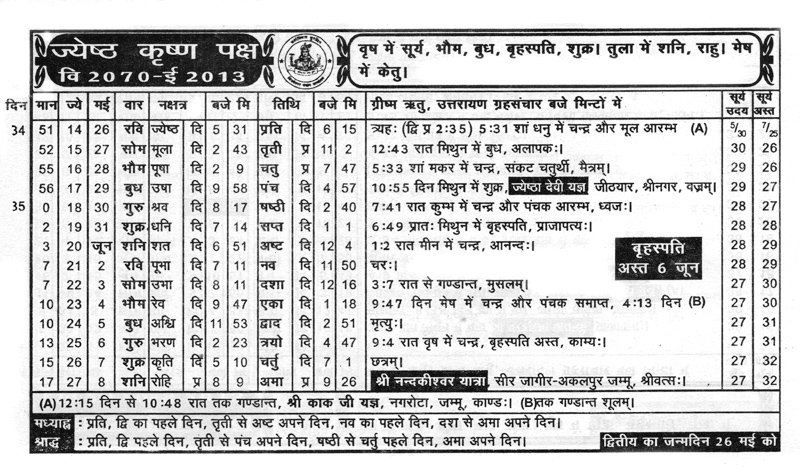 ज्येष्ठ कृष्ण पक्ष
वि 2070-ई 2013
वृष में सूर्य, भौम, बुध, बृहस्पति, शुक्र। तुला में शनि, राहु। मेष
में केतु।
दिन मान ज्ये मई वार नक्षत्र बजे मि तिथि बजे मि ग्रीष्म ऋतु, उत्तरायण ग्रहसंचार बजे मिन्टों में सूर्य उदय सूर्य अस्त
34 51 14 26 रवि ज्येष्ठ दि 5 31 प्रति दि 6 15 त्र्यहः (द्वि प्र 2:35) 5:31 शां धनु में चन्द्र और मूल आरम्भ (A) 5/30 7/25
52 15 27 सोम मूला दि 2 43 तृती प्र 11 2 12:43 रात मिथुन में बुध, अलापकः। 30 26
55 16 28 भौम पूषा दि 2 9 चतु प्र 7 47 5:33 शां मकर में चन्द्र, संकट चतुर्थी, मैत्रम्। 29 26
56 17 29 बुध उषा दि 9 58 पंच दि 4 57 10:55 दिन मिथुन में शुक्र, ज्येष्ठा देवी यज्ञ जीठयार, श्रीनगर, वज्रम्। 29 27
35 0 18 30 गुरु श्रव दि 8 17 षष्ठी दि 2 40 7:41 रात कुम्भ में चन्द्र और पंचक आरम्भ, ध्वजः। 28 27
2 19 31 शुक्र धनि दि 7 14 सप्त दि 1 1 6:49 प्रातः मिथुन में बृहस्पति, प्राजापत्यः। 28 28
3 20 जून शनि शत दि 6 51 अष्ट दि 12 4 1:2 रात मीन में चन्द्र, आनन्दः। 28 29
बृहस्पति
अस्त 6 जून
7 21 2 रवि पूभा दि 7 11 नव दि 11 50 चरः। 28 29
7 22 3 सोम उभा दि 8 11 दशा दि 12 16 3:7 रात से गण्डान्त, मुसलम्। 27 30
10 23 4 भौम रेव दि 9 47 एका दि 1 18 9:47 दिन मेष में चन्द्र और पंचक समाप्त, 4:13 दिन (B) 27 30
10 24 5 बुध अश्वि दि 11 53 द्वाद दि 2 51 मृत्युः। 27 31
13 25 6 गुरु भरण दि 2 23 त्रयो दि 4 47 9:4 रात वृष में चन्द्र, बृहस्पति अस्त, काम्यः। 27 31
15 26 7 शुक्र कृति दि 5 10 चर्तु दि 7 1 छत्रम्। 27 32
17 27 8 शनि रोहि प्र 8 9 अमा प्र 9 26 श्री नन्दकीश्वर यात्रा, सीर जागीर-अकलपुर जम्मू, श्रीवत्सः। 27 32
(A)12:15 दिन से 10:48 रात तक गण्डान्त, श्री काक जी यज्ञ, नगरोटा, जम्मू, काण्डः। (B)तक गण्डान्त शूलम्।
मध्याह्न : प्रति, द्वि का पहले दिन, तृती से अष्ट अपने दिन, नव का पहले दिन, दश से अमा अपने दिन।
श्राद्ध : प्रति, द्वि पहले दिन, तृती से पंच अपने दिन, षष्ठी से चर्तु पहले दिन, अमा अपने दिन। द्वितीय का जन्मदिन 26 मई को